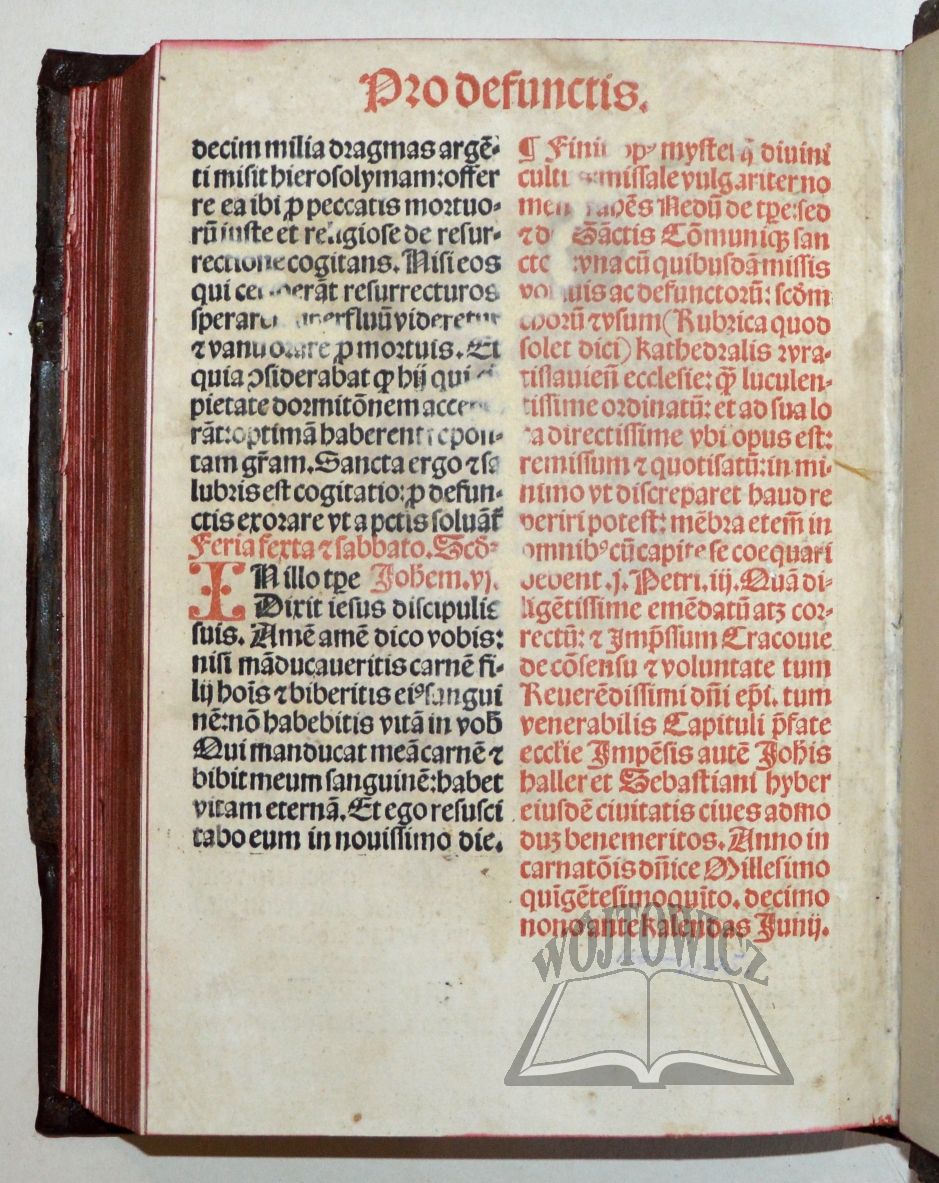 Pro defunctis.
decim milia dragmas argẽ-
ti misit hierosolymam: offer
re ea ibi ꝓ peccatis mortuo-
rũ iuste et religiose de resur-
rectione cogitans. Nisi eos
qui ceciderãt resurrecturos
speraret superfluũ videretur
⁊ vanũ orare ꝓ mortuis. Et
quia ↄsiderabat ꝙ hij qui
pietate dormitõnem accep
rãt: optimã haberent repoſi-
tam gr̃am. Sancta ergo ⁊ sa
lubris est cogitatio: ꝓ defun-
ctis exorare vt a pctis soluãt̃
Feria sexta ⁊ sabbato. Scd̃-
IN illo tp̃e Johem. vj.
Dixit iesus discipulis
suis. Amẽ amẽ dico vobis:
nisi mãducaueritis carnẽ fi-
lij hoĩs ⁊ biberitis eiꝰ sangui
nẽ: nõ habebitis vitã in vob̃
Qui manducat meã carnẽ ⁊
bibit meum sanguinẽ: habet
vitam eternã. Et ego resusci
tabo eum in nouissimo die.
¶ Finit opꝰ mystei q̃ diuini
culti missale vulgariter no
men habẽs Nedũ de tp̃e: sed
⁊ de Sãctis Cõmuniqꝫ san
cto vna cũ quibusdã missis
votiuis ac defunctorũ: scd̃m
chorũ ⁊ vsum (Rubrica quod
solet dici) kathedralis wra-
tislauien̄ ecclesie: q̃ꝫ luculen-
tissime ordinatũ: et ad sua lo
ca directissime vbi opus est:
remissum ⁊ quotisatũ: in mi-
nimo vt discreparet haud re
periri potest: mẽbra etem̃ in
omnibꝰ cũ capite se coequari
debent .j. Petri. iij. Quã di-
ligẽtissime emẽdatũ atꝫ cor-
rectũ: ⁊ Imp̃ssum Cracouie
de cõsensu ⁊ voluntate tum
Reuerẽdissimi dñi ep̃i. tum
venerabilis Capituli p̃fate
eccl̃ie Impẽsis autẽ Joh̃is
haller et Sebastiani hyber
eiusdẽ ciuitatis ciues admo
duꝫ benemeritos. Anno in
carnatõis dñice Millesimo
quĩgẽtesimoquĩto. decimo
nono ante kalendas Junij.
WOJTOWICZ